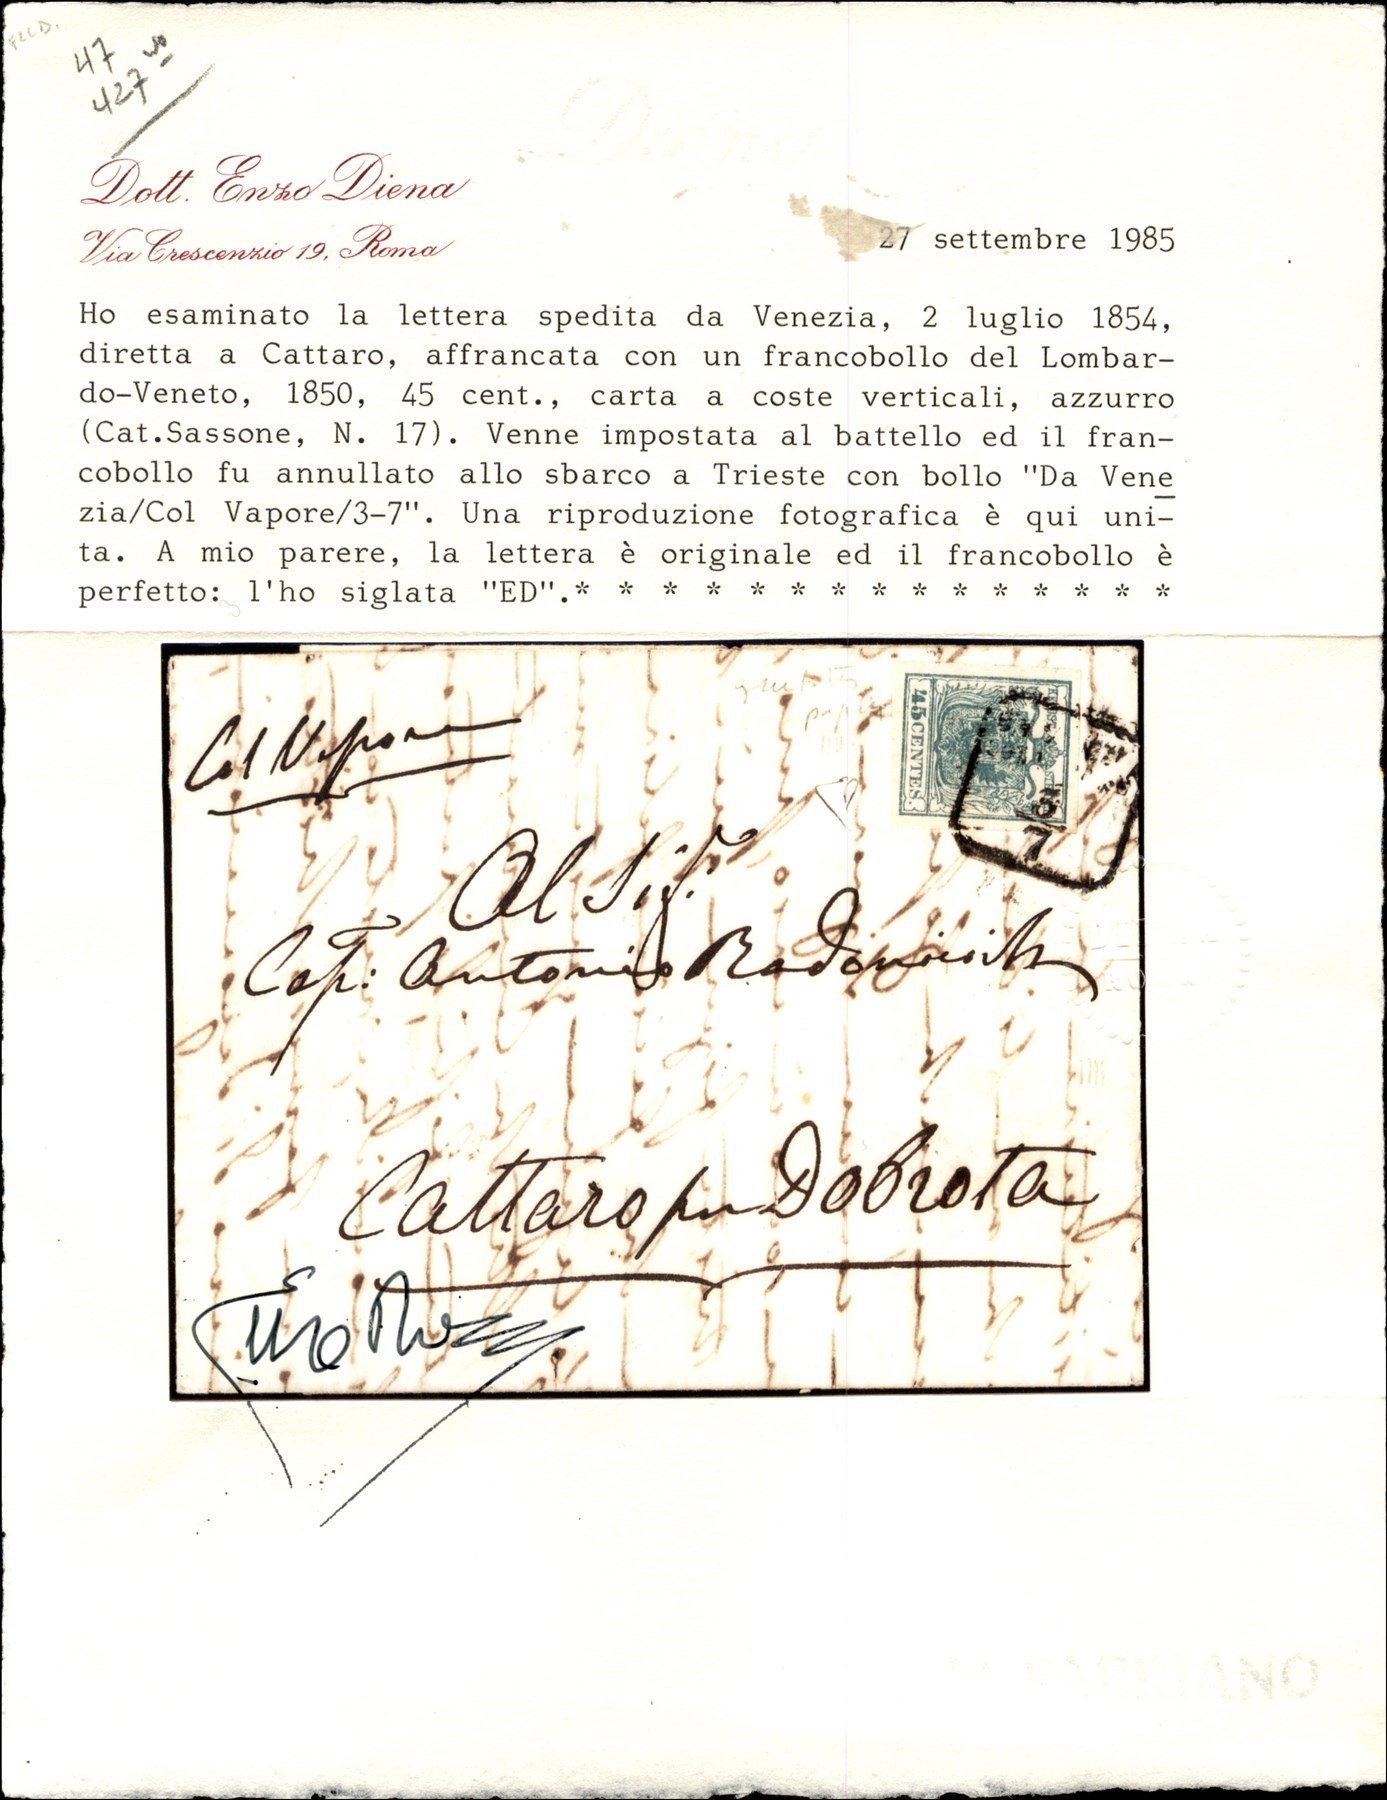 47
427
Dott. Enzo Diena
Via Crescenzio 19, Roma
27 settembre 1985
Ho esaminato la lettera spedita da Venezia, 2 luglio 1854,
diretta a Cattaro, affrancata con un francobollo del Lombar-
do-Veneto, 1850, 45 cent., carta a coste verticali, azzurro
(Cat.Sassone, N. 17). Venne impostata al battello ed il fran-
cobollo fu annullato allo sbarco a Trieste con bollo "Da Vene
zia/Col Vapore/3-7". Una riproduzione fotografica è qui uni-
ta. A mio parere, la lettera è originale ed il francobollo è
perfetto: l'ho siglata "ED".* * * * * * * * * * * * * * *
Col Vapore
45 CENTES.
7
Al Sigr.
Cap: Antonio Radonicich
Cattaro per Dobrota
FABRIANO